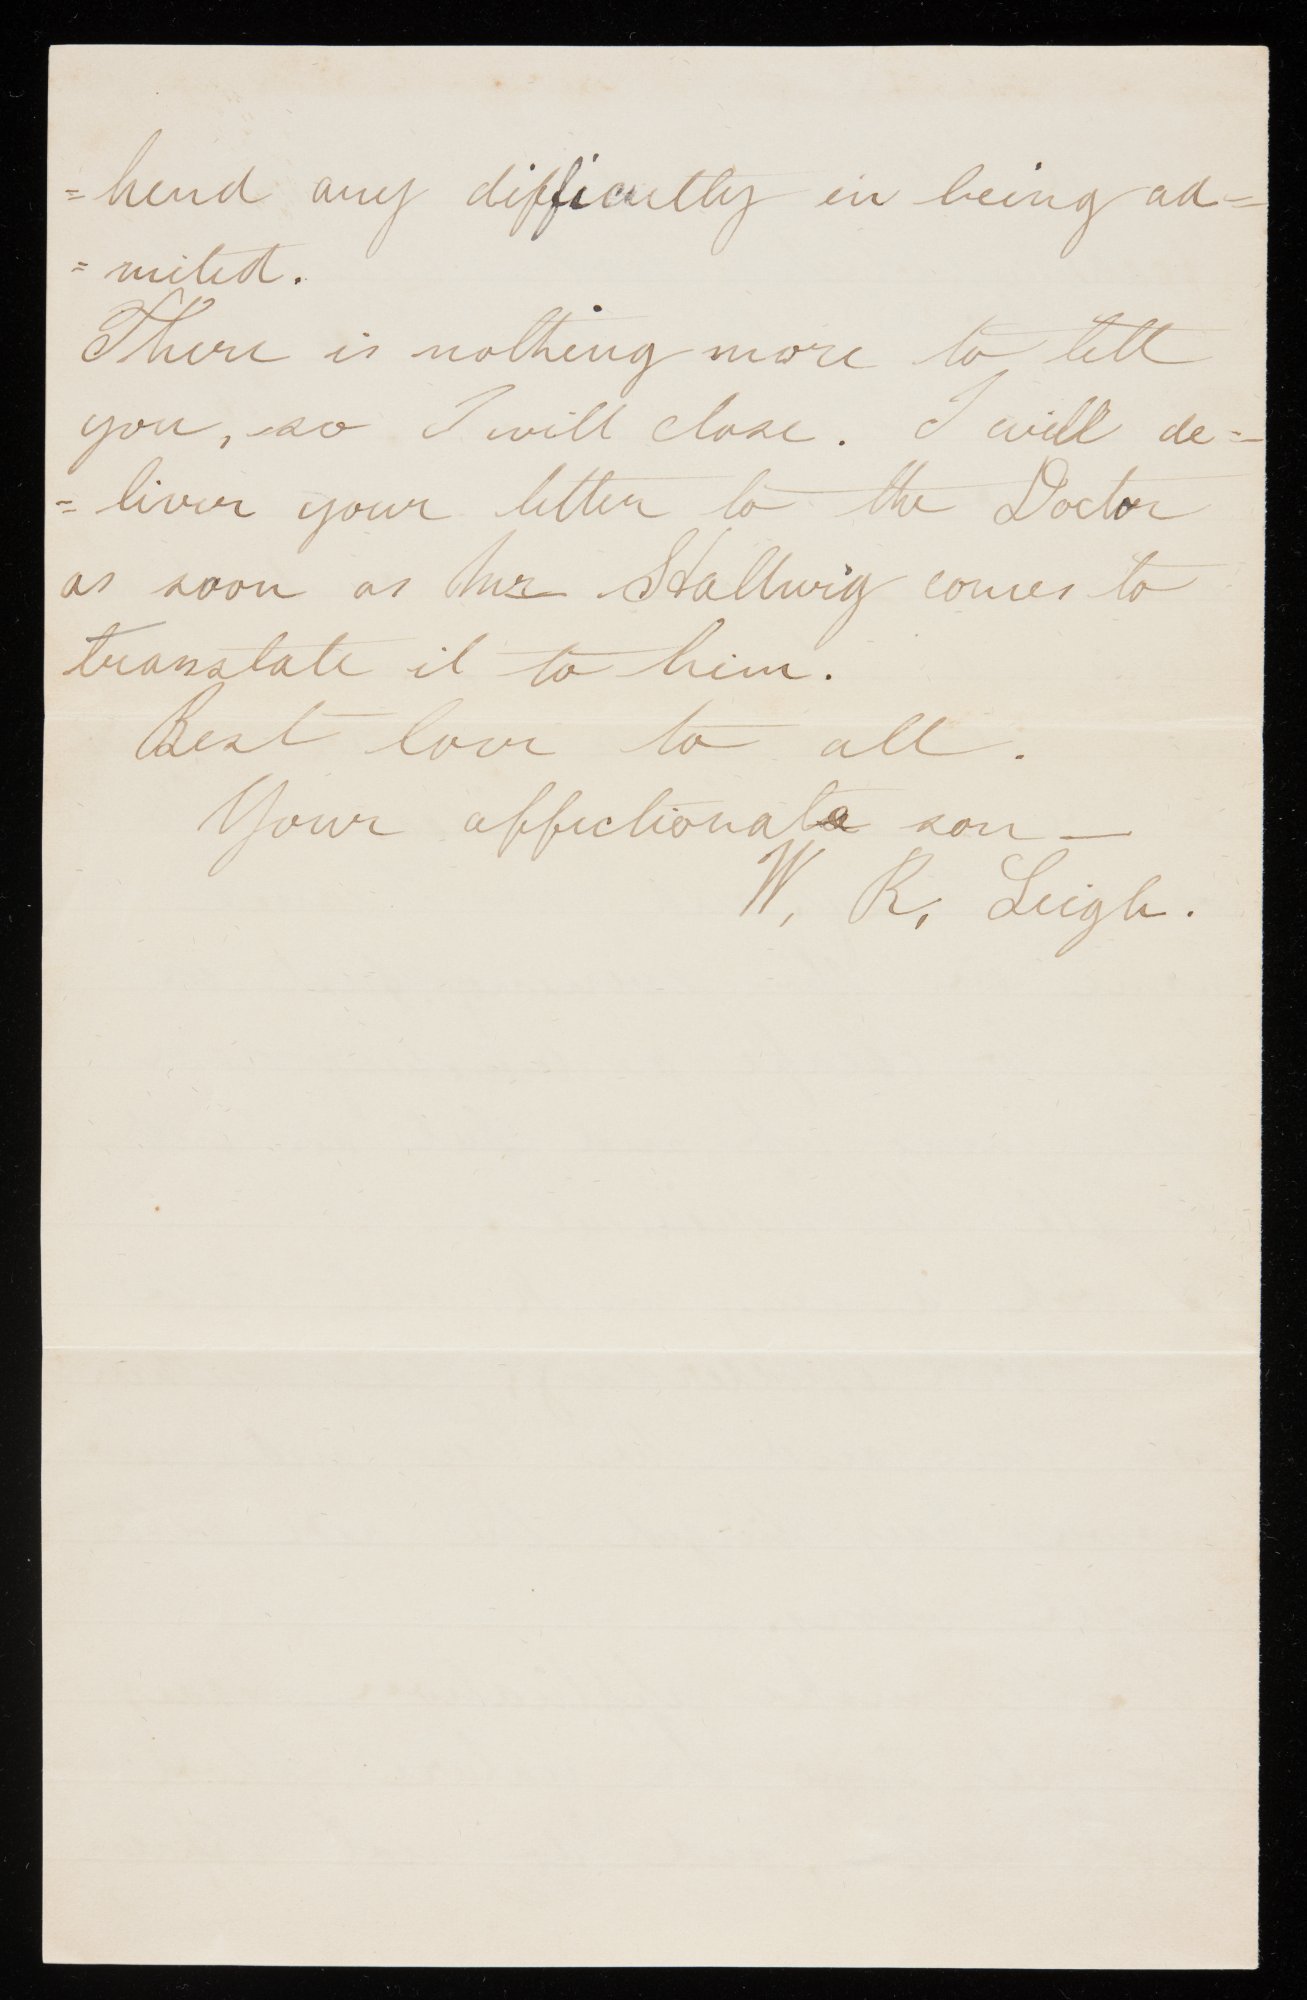 =hend any difficultly in being ad=
=mited.
There is nothing more to tell
you, so I will close. I will de=
=liver your letter to the Doctor
as soon as Mr Hallwig comes to
translate it to him.
Best love to all.
Your affectionate son —
W. R. Leigh.